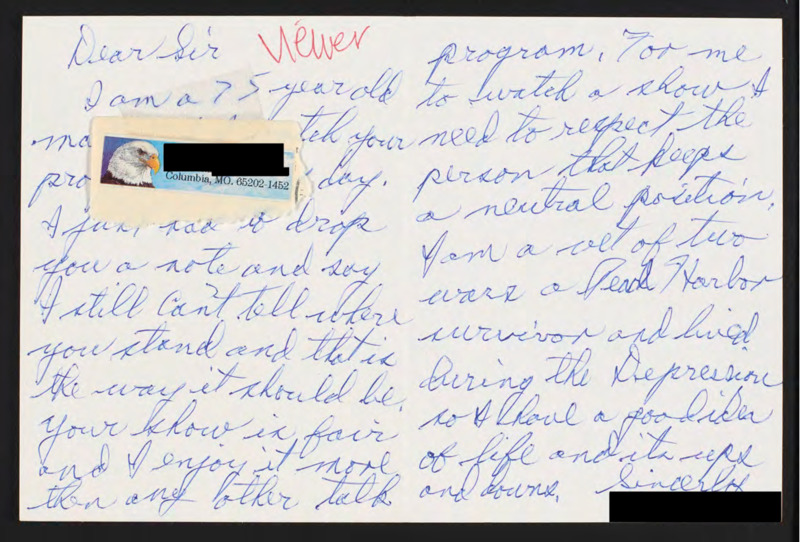 Dear Sir
Viewer
I am a 75 year old
ma tch your
pro day.
I just had to drop
you a note and say
I still can't tell where
you stand and that is
the way it should be.
your show is fair
and I enjoy it more
then any other talk
Columbia, MO. 65202-1452
program. For me
to watch a show I
need to respect the
person that keeps
a neutral position.
I am a vet of two
wars a Pearl Harbor
survivor and lived
during the Depression
so I have a good idea
of life and its ups
and downs. Sincerly